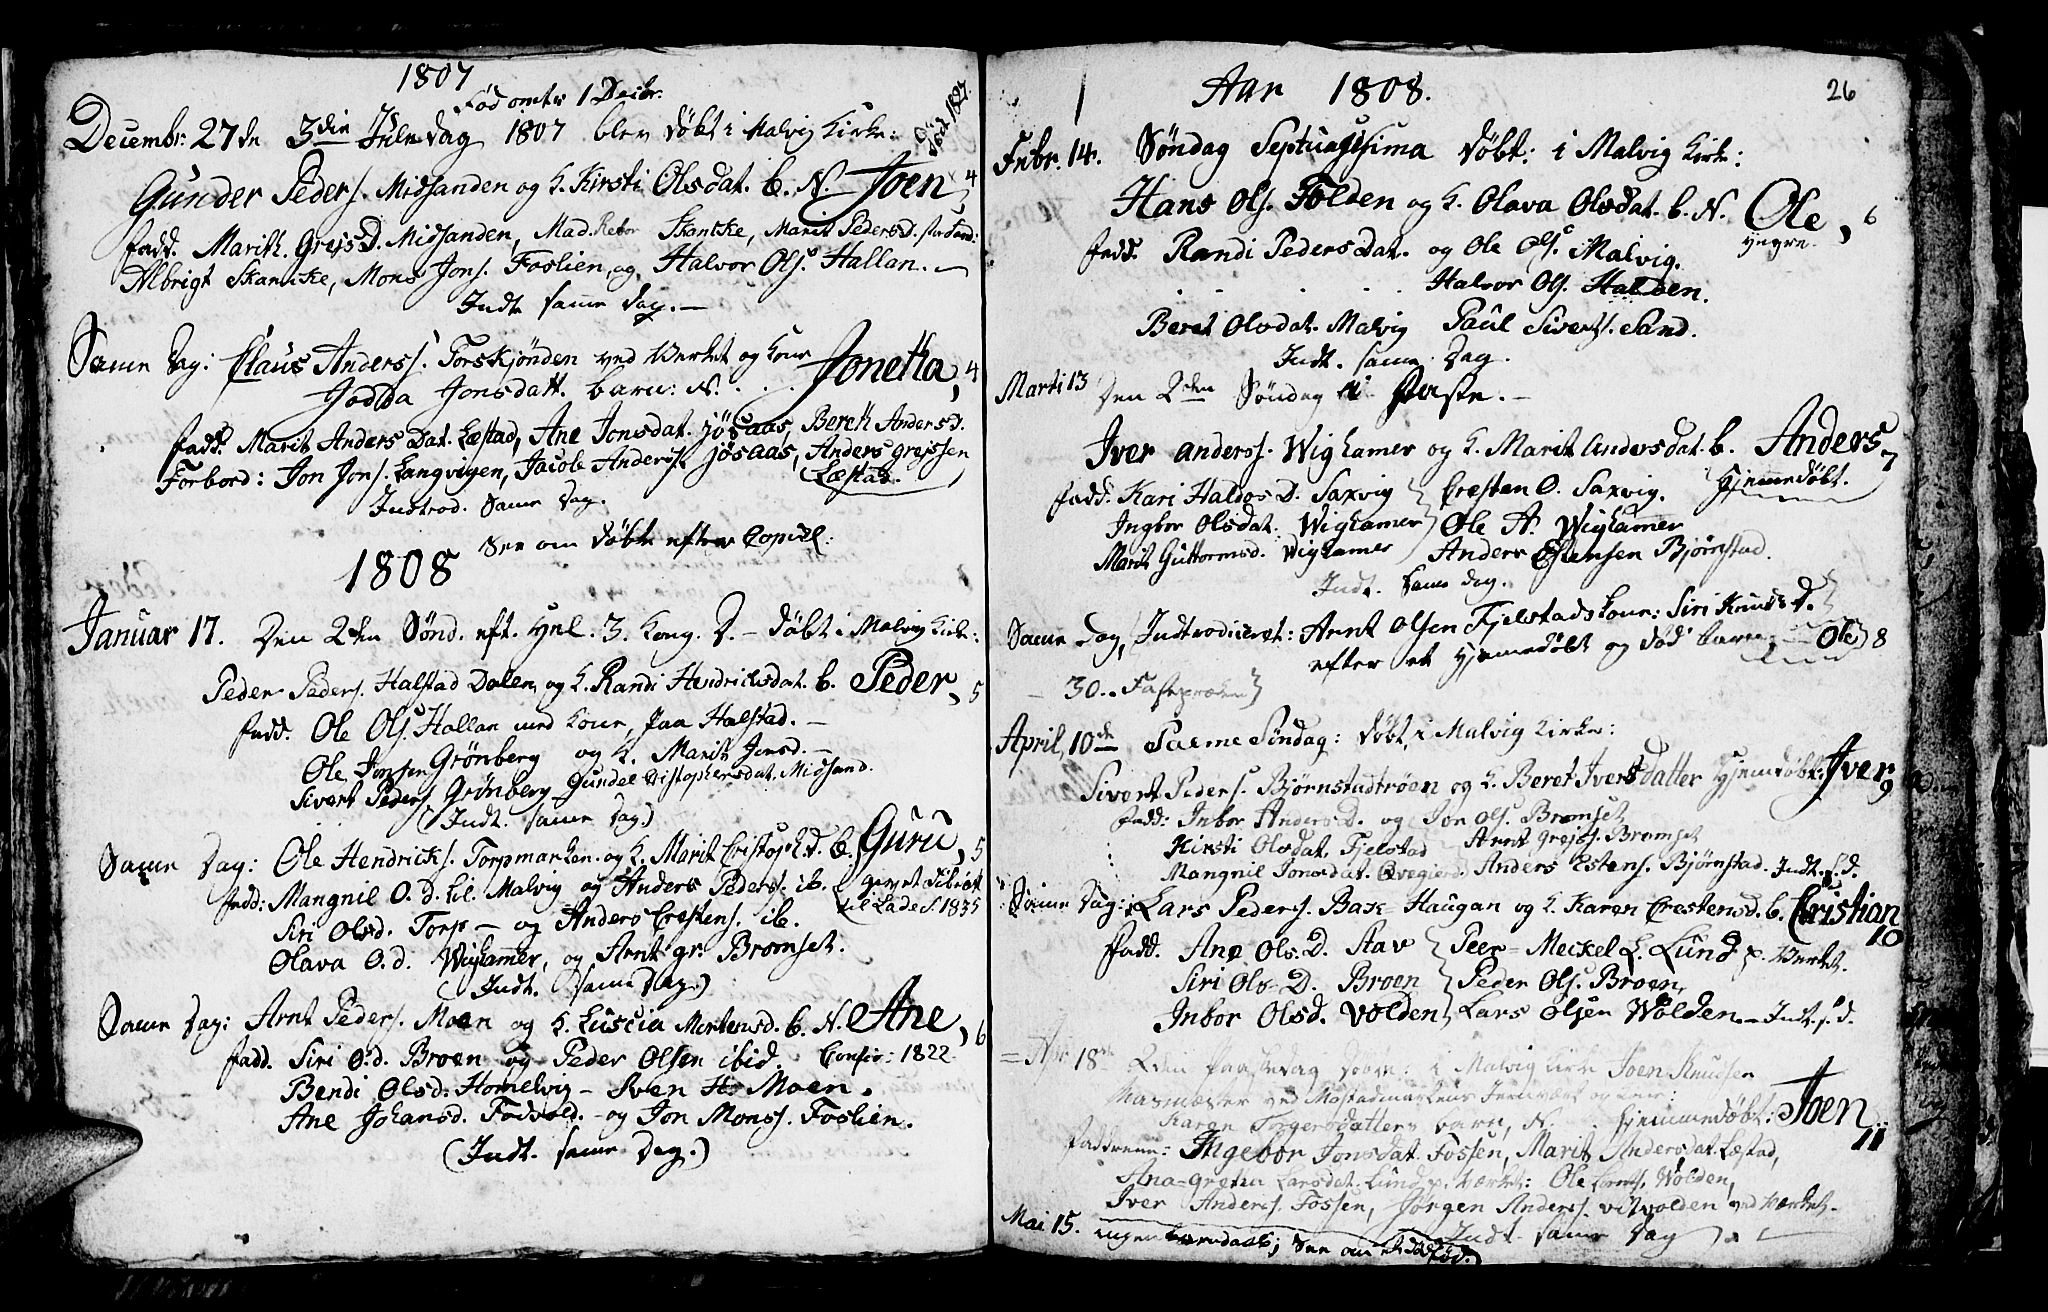 1807
Fød omtr 1 Decbr.
Decembr: 27de 3die Juledag 1807 blev døbt i Malvig Kirke:
Død 1827.
Gunder Peders. Midsanden og K. Kirsti Olsdat. b. N. Joen 4
fadd. Marith Grejs D. Midsanden, Mad. Skancke, Marit Pedersd.
Albrigt Skancke, Mons Jons. Foslien, og Halvor Ols. Hallan.
Indt. samme dag.
Samme Dag: Claus Anderss. Torskjønden ved Verket og Kone Jonetta, 4
Jodda Jonsdatt. barn: N.
fadd. Marit Anders Dat. Læstad, Ane Jonsdat. Jøsaas, Bereth Anders D.
Forbord: Jon Jons. Langvigen, Jacob Anders. Jøsaas, Anders Grejssen
Læstad.
Indtrod. Samme Dag.
See om døbte efter Copiel:
1808
Januar 17. Den 2den Sønd. eft. Hel. 3. Kong. D. - døbt i Malvig Kirke:
Peder Peders. Halstad Dalen, og K. Randi Hendrichsdat. b. Peder, 5
fadd. Ole Ols. Hallan med Kone, paa Halstad.
Ole Jonsen Grønberg og K. Marith Jonsd.
Sivert Peders. Grønberg Gundel Cristophersdat. Midsand.
(Indt. samme Dag.)
Samme Dag: Ole Hendricks. Torpmarken og K. Marit Cristoph. D. b. Guru, 5
fadd: Mangnil O. d. lil. Malvig og Anders Peders. ib.
til Lade S. 1835
Siri Olsd. Torp - og Anders Crestens. ib.
Olava O. d. Wighamer, og Arnt gr. Bromset.
(Indt. samme Dag.)
Samme Dag: Arnt Peders. Moen og K. Luscia Mortensd. b. N. Ane, 6
fadd. Siri O. d. Broen og Peder Olsen ibid. Confir: 1822
Bendi Olsd. Homelvig - Sven H. Moen.
Ane Johansd. Fodvold. - og Jon Monss. Foslien.
(Indt. samme Dag.)
Aar 1808.
26
Febr. 14. Søndag Septuagesima døbt: i Malvig Kirke:
Hans Ols. Folden og K. Olava Olsdat. b. N. Ole, 6
fadd. Randi Pedersdat. og Ole Ols. Malvig.
Halvor Ols. Halden.
Beret Olsdat. Malvig Paul Siverts. Sand.
Indt. samme Dag.
Marti 13 Den 2den Søndag i Faste.
Iver Anderss. Wighamer og K. Marit Andersdat. b. Anders 7
Hjemmedøbt.
fadd. Kari Haldos D. Saxvig Cresten O. Saxvig.
Ingbor Olsdat. Wighamer Ole A. Wighamer
Marit Guttormsd. Wighamer Anders Estensen Bjørnstad.
Indt. samme dag.
Samme Dag, Indtroduceret: Arnt Olsen Fjelstads Kone: Siri Knuds D.
efter et Hjemmedøbt og død barn - Ole 8
- 30. Fasteprædken
April, 10de Palme Søndag: døbt, i Malvig Kirke:
Sivert Peders. Bjørnstadtrøen og K. Beret Ivers datter Hjemdøbt: Iver 9
fadd: Inbor Anders D. og Jon Ols. Bromset
Kirsti Olsdat. Fjelstad Arnt Grejss. Bromset
Mangnil Jonsdat. Anders Estens. Bjørnstad. Indt. s. d.
Samme Dag: Lars Peders. Bak-Haugan og K. Karen Crestensd. b. Cristian 10
fadd. Ane Ols. D. Stav Peer-Meckel L. Lund p. Verket.
Siri Ols. D. Broen Peder Ols. Broen,
Inbor Olsd. Volden, Lars Olsen Wolden - Indt. s. d.
- Apr 18de 2den Paaskedag døbt: i Malvig Kirke Joen Knudsen
Masmæster ved Mostadmarkens Jernværk og Kone:
Karen Torgersdatters barn, N. hjemmedøbt: Joen 11
fadderne: Ingebor Jonsdat. Fossen, Marit Andersdat. Læstad,
Ana-Gretha Larsdat. Lund p. Værket: Ole Wolden,
Iver Anderss. Fossen, Jørgen Anderss. Vitvolden ved Værket.
Indt. samme Dag
Mai 15. ingen barndaab;